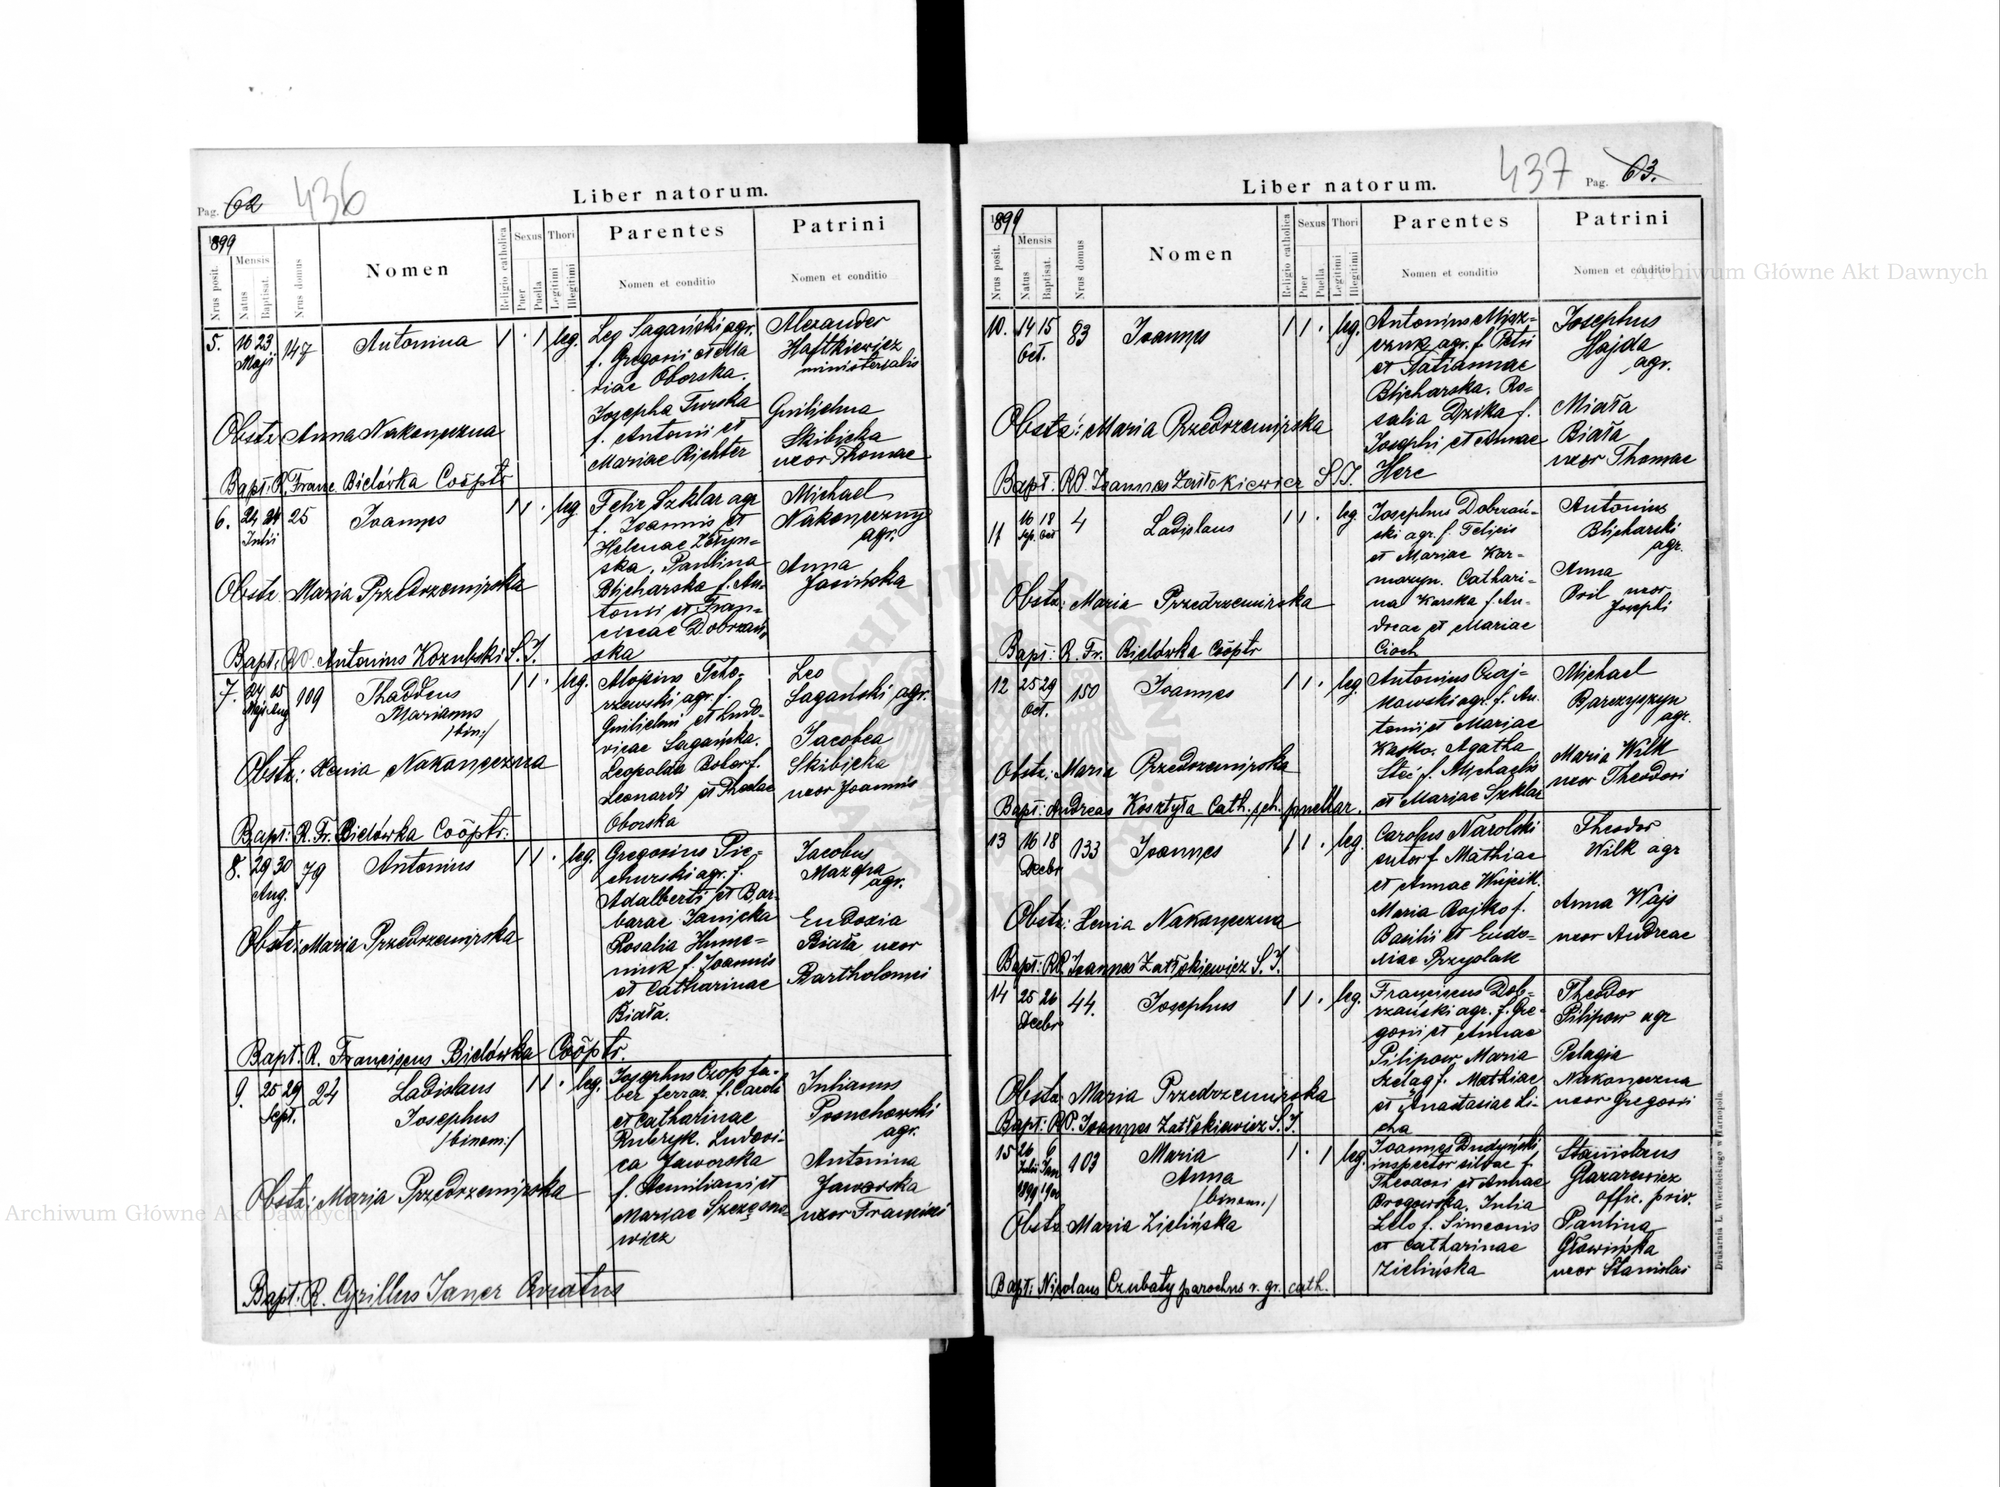 Pag. 62 436
Liber natorum.
1899
Nrus posit.
Mensis
Natus
Baptisat.
Nrus domus
Nomen
Religio catholica
Sexus
Puer
Puella
Thori
Legitimi
Illegitimi
Parentes
Nomen et conditio
Patrini
Nomen et conditio
5. 16 23 Maji 147 Antonina 1 . 1 leg.
Leo Sagański agr.
f. Gregorii et Ma
riae Oborska.
Josepha Turska
f. Antonii et
Mariae Richter
Alexander
Haftkiewicz
ministerialis
Guilielma
Skibicka
uxor Thomae
Obstr. Anna Nakoneczna
Bapt: R. Franc Bielówka Coöptr
6. 24 24 Julii 25 Joannes 1 1 . leg.
Felix Szklar agr
f. Joannis et
Helenae
ska, Paulina
Blicharska f. An-
tonii et Fran-
ciscae Dobrzań-
ska
Michael
Nakoneczny
agr.
Anna
Jasińska
Obstr. Maria Przedrzemirska
Bapt: RP. Antonius Kozubski S. J.
7. 24 15 Maji Aug 109 Thaddeus 1 1 . leg.
Marianus
/bin:/
Aloysius
rzewski agr. f.
Guilielmi et Ludo-
vicae Sagańska.
Leopolda Bober f.
Leonardi et Theclae
Oborska
Leo
Sagański agr.
Jacobea
Skibicka
uxor Joannis
Obstr: Xenia Nakoneczna
Bapt: R. Fr. Bielówka Coöptr.
8. 29 30 Aug. 79 Antonius 1 1 . leg.
Gregorius Pie-
churski agr. f.
Adalberti et Bar-
barae Janicka
Rosalia Hume-
niuk f. Joannis
et Catharinae
Biała.
Jacobus
Mazepa
agr.
Eudoxia
Biała uxor
Bartholomei
Obstr: Maria Przedrzemirska
Bapt: R. Franciscus Bielówka Coöptr.
9. 25 29 Sept. 24 Ladislaus 1 1 . leg.
Josephus
/binom:/
Josephus Czop fa-
ber ferrar. f. Caroli
et Catharinae
Kubryk. Ludovi-
ca Jaworska
f. Aemiliani et
Mariae
wicz
Julianus
agr.
Antonina
Jaworska
uxor Francisci
Obstr: Maria Przedrzemirska
Bapt: R. Cyrillus Janer Curatus
437 Pag. 63.
Liber natorum.
1899
Nrus posit.
Mensis
Natus
Baptisat.
Nrus domus
Nomen
Religio catholica
Sexus
Puer
Puella
Thori
Legitimi
Illegitimi
Parentes
Nomen et conditio
Patrini
Nomen et conditio
10. 14 15 Oct. 83 Joannes 1 1 . leg.
Antonius Misz-
czuk agr. f. Petri
et Tatiannae
Blicharska. Ro-
salia Dzika f.
Josephi et Annae
Herc
Josephus
Hajda
agr.
Biała
uxor Thomae
Obstr: Maria Przedrzemirska
Bapt: RP. Joannes Załokiewicz S. J.
11 16 18 Sep. Oct 4 Ladislaus 1 1 . leg.
Josephus Dobrzań-
ski agr. f. Felicis
et Mariae Kar-
mazyn. Cathari-
na Karska f. An-
dreae et Mariae
Cioch
Antonius
Blicharski
agr.
Anna
Bril uxor
Josephi
Obstr: Maria Przedrzemirska
Bapt: R. Fr. Bielówka Coöptr
12 25 29 Oct. 150 Joannes 1 1 . leg
Antonius Czaj-
kowski agr. f. An-
tonii et Mariae
Kasko. Agatha
Steć f. Michaelis
et Mariae Szklar
Michael
Barczyszyn
agr.
Maria Wilk
uxor Theodori
Obstr: Maria Przedrzemirska
Bapt: Andreas Kosztyła Cath. sch. puellar.
13 16 18 Decbr 133 Joannes 1 1 . leg.
Carolus Narolski
sutor f. Mathiae
et Annae Wujcik.
Maria Bojko f.
Basilii et Eudo-
xiae Przyolak
Theodor
Wilk agr
Anna Wajs
uxor Andreae
Obstr: Xenia Nakoneczna
Bapt: RP. Joannes Załokiewicz S. J.
14 25 26 Decbr 44. Josephus 1 1 . leg.
Franciscus Dob-
rzański agr. f. Gre-
gorii et Annae
Pilipow Maria
Szeląg f. Mathiae
et Anastasiae Li-
cha
Theodor
Pilipow agr
Pelagia
Nakoneczna
uxor Gregorii
Obstr: Maria Przedrzemirska
Bapt: RP. Joannes Załokiewicz S. J.
15 26 6 Julii Jan 1899 1900 103 Maria 1 . 1 leg.
Anna
/binom:/
Joannes Dudyński
inspector silvae f.
Theodori et Annae
Brogowska. Julia
Lelo f. Simeonis
et Catharinae
Zielińska
Stanislaus
Glazarewicz
offic. priv.
Paulina
Głowińska
uxor Stanislai
Obstr: Maria Zielińska
Bapt: Nicolaus Czubaty parochus r. gr. cath.
Drukarnia L. Wierzbickiego w Tarnopolu.
Archiwum Główne Akt Dawnych
Archiwum Główne Akt Dawnych
ARCHIWUM GŁÓWNE AKT DAWNYCH